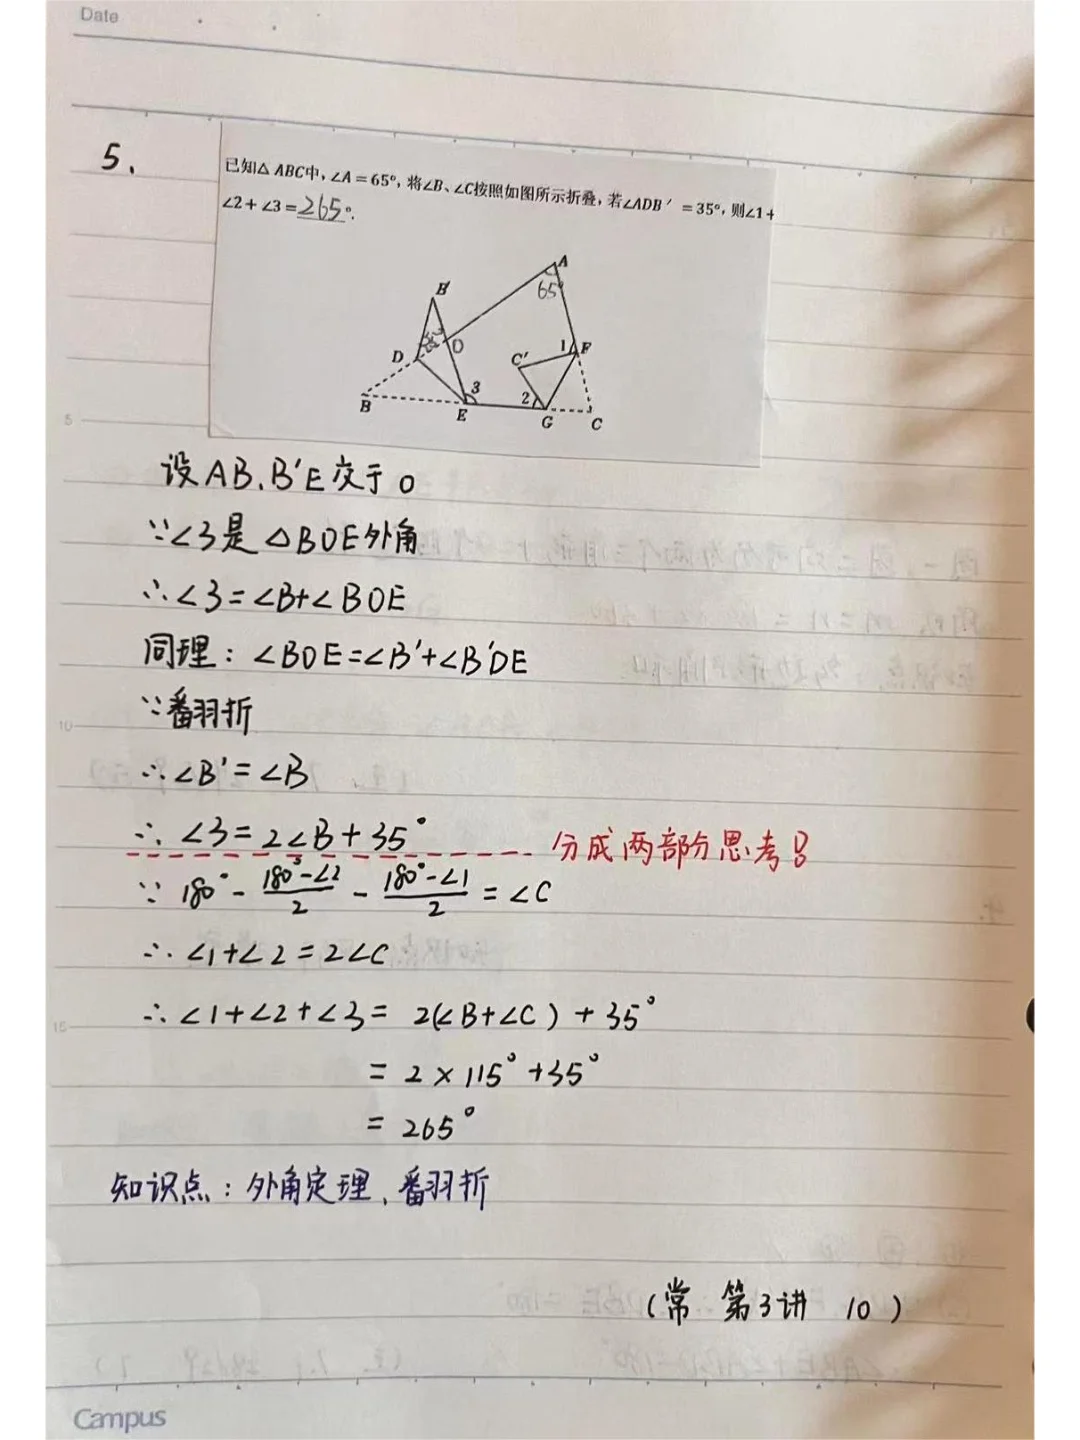 Date
5.
已知△ABC中，∠A＝65°，将∠B、∠C按照如图所示折叠，若∠ADB′＝35°，则∠1＋
∠2＋∠3＝265°.
A
65°
B′
D
35°
O
1
F
C′
3
2
B
E
G
C
5
设AB、B′E交于O
∵∠3是△BOE外角
∴∠3=∠B+∠BOE
同理：∠BOE=∠B′+∠B′DE
∵翻折
10
∴∠B′=∠B
∴∠3=2∠B+35° 分成两部分思考
∵180°-(180°-∠2)/2-(180°-∠1)/2=∠C
∴∠1+∠2=2∠C
15
∴∠1+∠2+∠3=2(∠B+∠C)+35°
=2×115°+35°
=265°
知识点：外角定理、翻折
(常 第3讲 10)
Campus